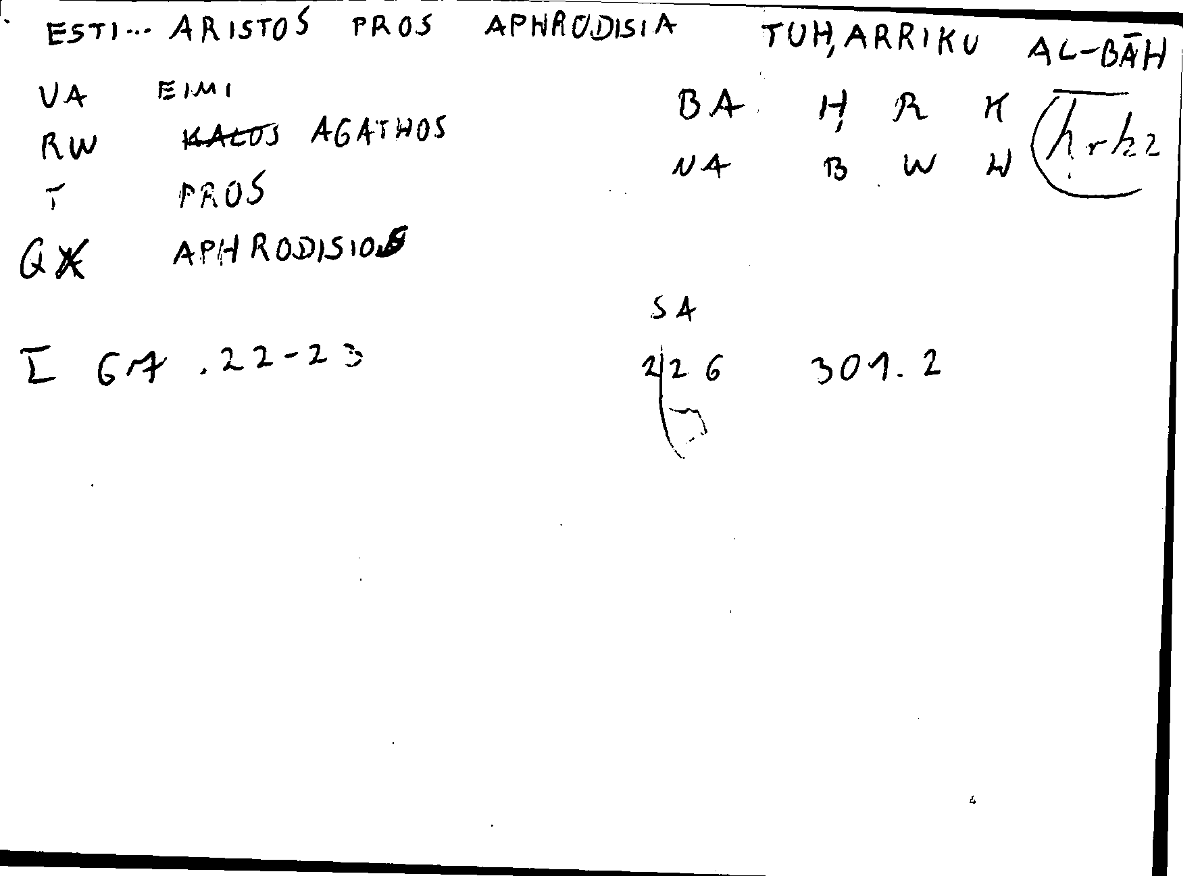 ESTI... ARISTOS PROS APHRODISIA TUḤARRIKU AL-BĀH
VA EIMI BA Ḥ R K ḥrk2
RW KALOS AGATHOS NA B W W
T PROS
Q APHRODISIOS
SA
I 67 .22-23 226 301.2